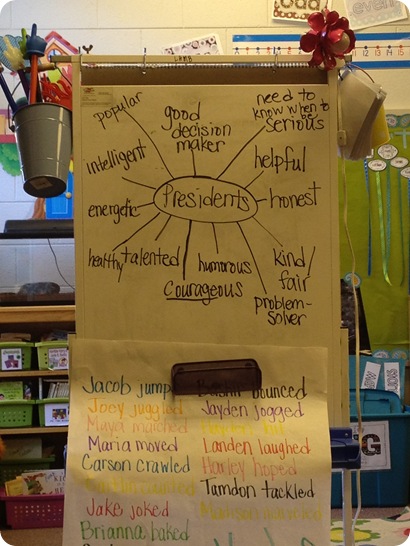 popular
good
decision
maker
need to
know when to be
serious
intelligent
helpful
Presidents
honest
energetic
healthy
talented
humorous
courageous
kind/
fair
problem-
solver
Jacob jump
bounced
Joey juggled
Jayden jogged
Maya marched
Maria moved
Landen laughed
Carson crawled
Harley hoped
Tamdon tackled
Jake joked
Brianna baked